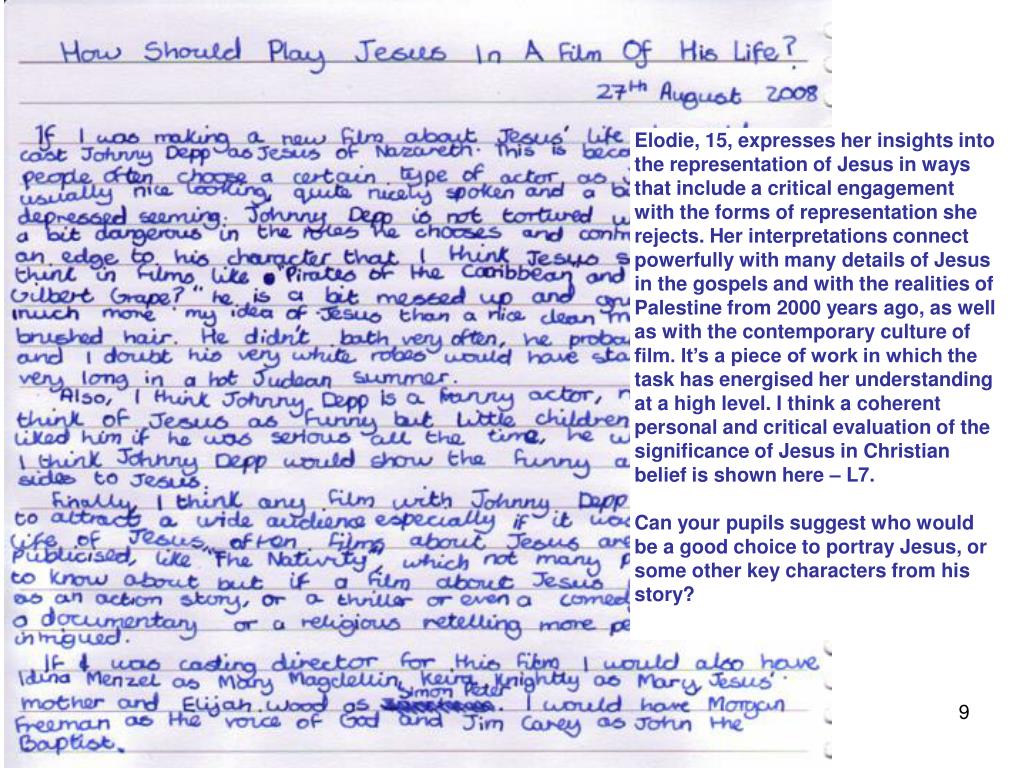 How Should Play Jesus In A Film Of His Life?
27th August 2008
If I was making a new film about Jesus' life
cast Johnny Depp as Jesus of Nazareth. This is beca
people often choose a certain type of actor as
usually nice looking, quite nicely spoken and a bi
depressed seeming. Johnny Depp is not tortured
a bit dangerous in the roles he chooses and
an edge to his character that I think Jesus
think in films like "Pirates of the Carribbean and
Gilbert Grape?" he is a bit messed up and
much more my idea of Jesus than a nice clean
brushed hair. He didn't bath very often, he proba
and I doubt his very white robes would have sta
very long in a hot Judean summer.
Also, I think Johnny Depp is a funny actor,
think of Jesus as funny but little children
liked him if he was serious all the time, he w
I think Johnny Depp would show the funny a
sides to Jesus.
Finally, I think any film with Johnny Depp
to attract a wide audience especially if it was
life of Jesus, often films about Jesus are
Publicised, like "The Nativity", which not many p
to know about but if a film about Jesus
as an action story, or a thriller or even a comed
a documentary or a religious retelling more pe
intrigued.
If I was casting director for this film I would also have
Idina Menzel as Mary Magdellin, Keira Knightly as Mary, Jesus'
mother and Elijah Wood as Simon Peter. I would have Morgan
Freeman as the voice of God and Jim Carey as John the
Baptist.
Elodie, 15, expresses her insights into
the representation of Jesus in ways
that include a critical engagement
with the forms of representation she
rejects. Her interpretations connect
powerfully with many details of Jesus
in the gospels and with the realities of
Palestine from 2000 years ago, as well
as with the contemporary culture of
film. It's a piece of work in which the
task has energised her understanding
at a high level. I think a coherent
personal and critical evaluation of the
significance of Jesus in Christian
belief is shown here – L7.
Can your pupils suggest who would
be a good choice to portray Jesus, or
some other key characters from his
story?
9